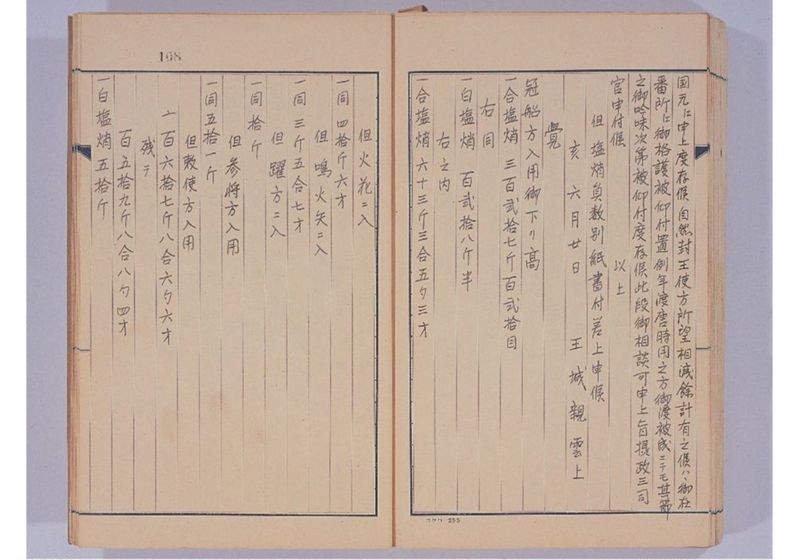 国元に申上度存候自然封王使方所望相減餘計有之候ハヽ御在
番所に御格護被仰付置例年渡唐時用之方御渡被成ニテモ其節
之御吟味次第被仰付度存候此段御相談可申上旨摂政三司
官申付候 以上
但塩焇員数別紙書付差上申候
亥 六月廿日 王城親雲上
覺
冠船方入用御下リ高
一合塩焇 三百弐拾七斤百弐拾目
右同
一白塩焇 百弐拾八斤半
右之内
一合塩焇六十三斤三合五夕三才
108
但火花ニ入
一同四拾斤六才
但鳴火矢ニ入
一同三斤五合七才
但躍方ニ入
一同拾斤
但参将方入用
一同五拾一斤
但敕使方入用
〆百六拾七斤八合六夕六才
残テ
百五拾九斤八合八夕四才
一白塩焇五拾斤